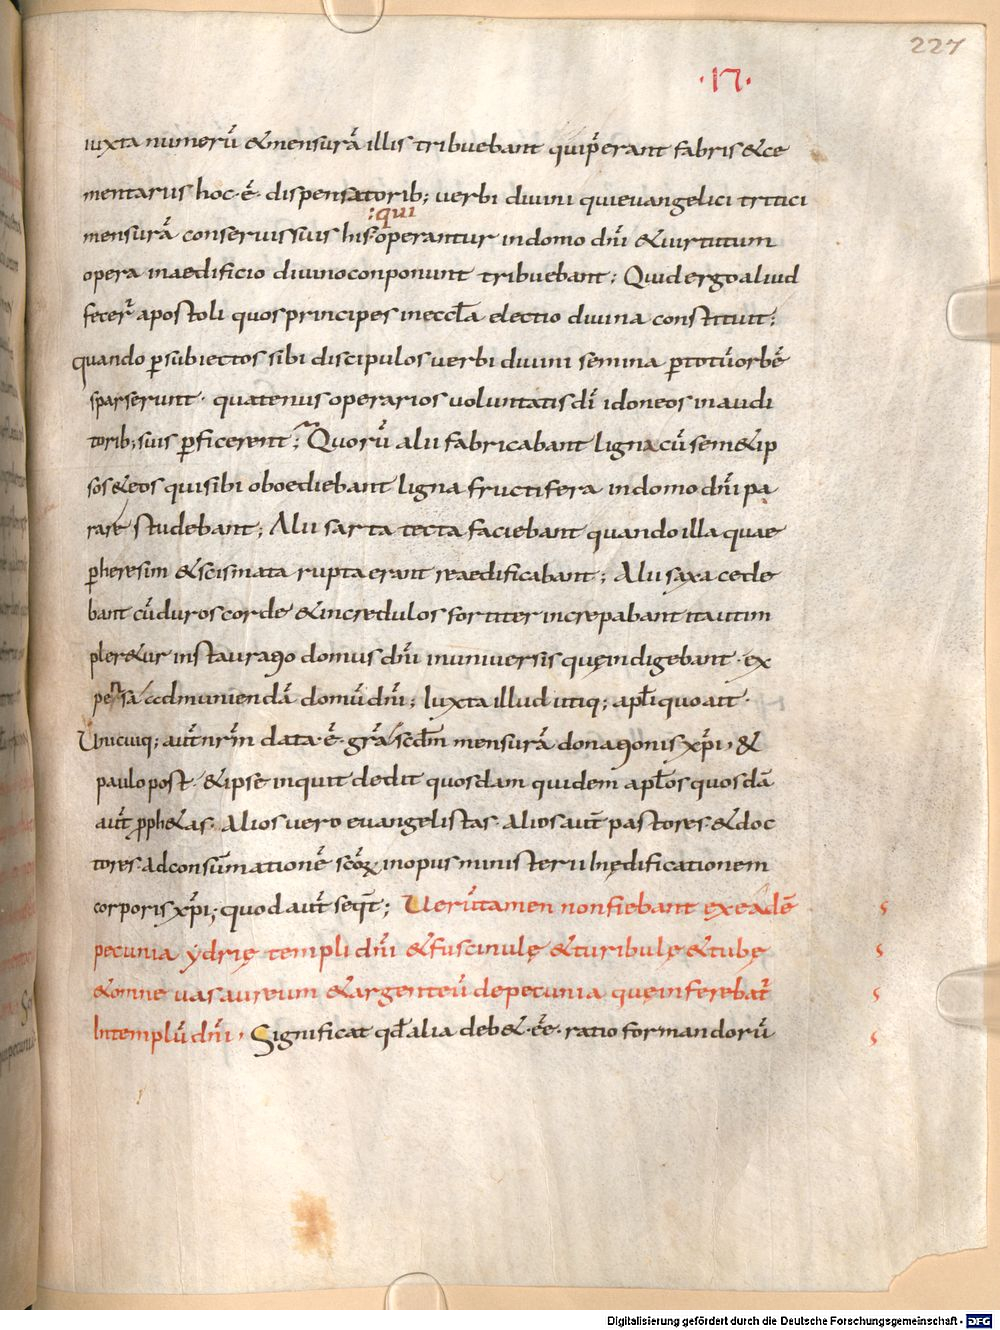 227
·IΠ·
iuxta numerū &mensurā illis tribuebant quip̄erant fabris &ce
mentariis hoc·ē· dispensatorib; verbi divini quievangelici tritici
:qui
mensurā conservis suis his operantur indomo dn̄i &virtutum
opera inaedificio divinoconponunt tribuebant; Quid ergo aliud
fecer̄ apostoli quosprincipes ineccl̄a electio divina constituit;
quando p̄subiectos sibi discipulos verbi divini semina p̄totūorbē
sparserunt· quatenus operarios voluntatis dī idoneos inaudi
torib; suis p̄ficerent; Quorū alii fabricabant ligna cū sem&ip
sos &eos quisibi oboediebant ligna fructifera indomo dn̄i pa
rare studebant; Alii sarta tecta faciebant quando illa quae
p̄heresim &scismata rupta erant reaedificabant; Alii saxa cede
bant cū duros corde &incredulos fortiter increpabant itautim
pler&ur instauratio domus dn̄i inuniversis quęindigebant· ex
pensa admuniendā domū dn̄i; Iuxta illud utiq; apl̄i quo ait·
Unicuiq; aut̄ nr̄m data·ē· gr̄a scd̄m mensurā donationis xp̄i, &
paulopost· &ipse inquit dedit quosdam quidem apl̄os quosdā
aut̄ p̄ph&as· Alios vero evangelistas· Alios aut̄ pastores &doc
tores· Adconsūmationē sc̄oꝝ inopus ministerii Inędificationem
corporis xp̄i; quod aut̄ seq̄t; Uerūtamen nonfiebant exeadē
pecunia ydrię templi dn̄i &fuscinulę &turibulę &tubę
&omne vas aureum &argenteū depecunia quęinferebat̄
Intemplū dn̄i, Significat qd̄ alia deb&·ēē· ratio formandorū
Digitalisierung gefördert durch die Deutsche Forschungsgemeinschaft - DFG